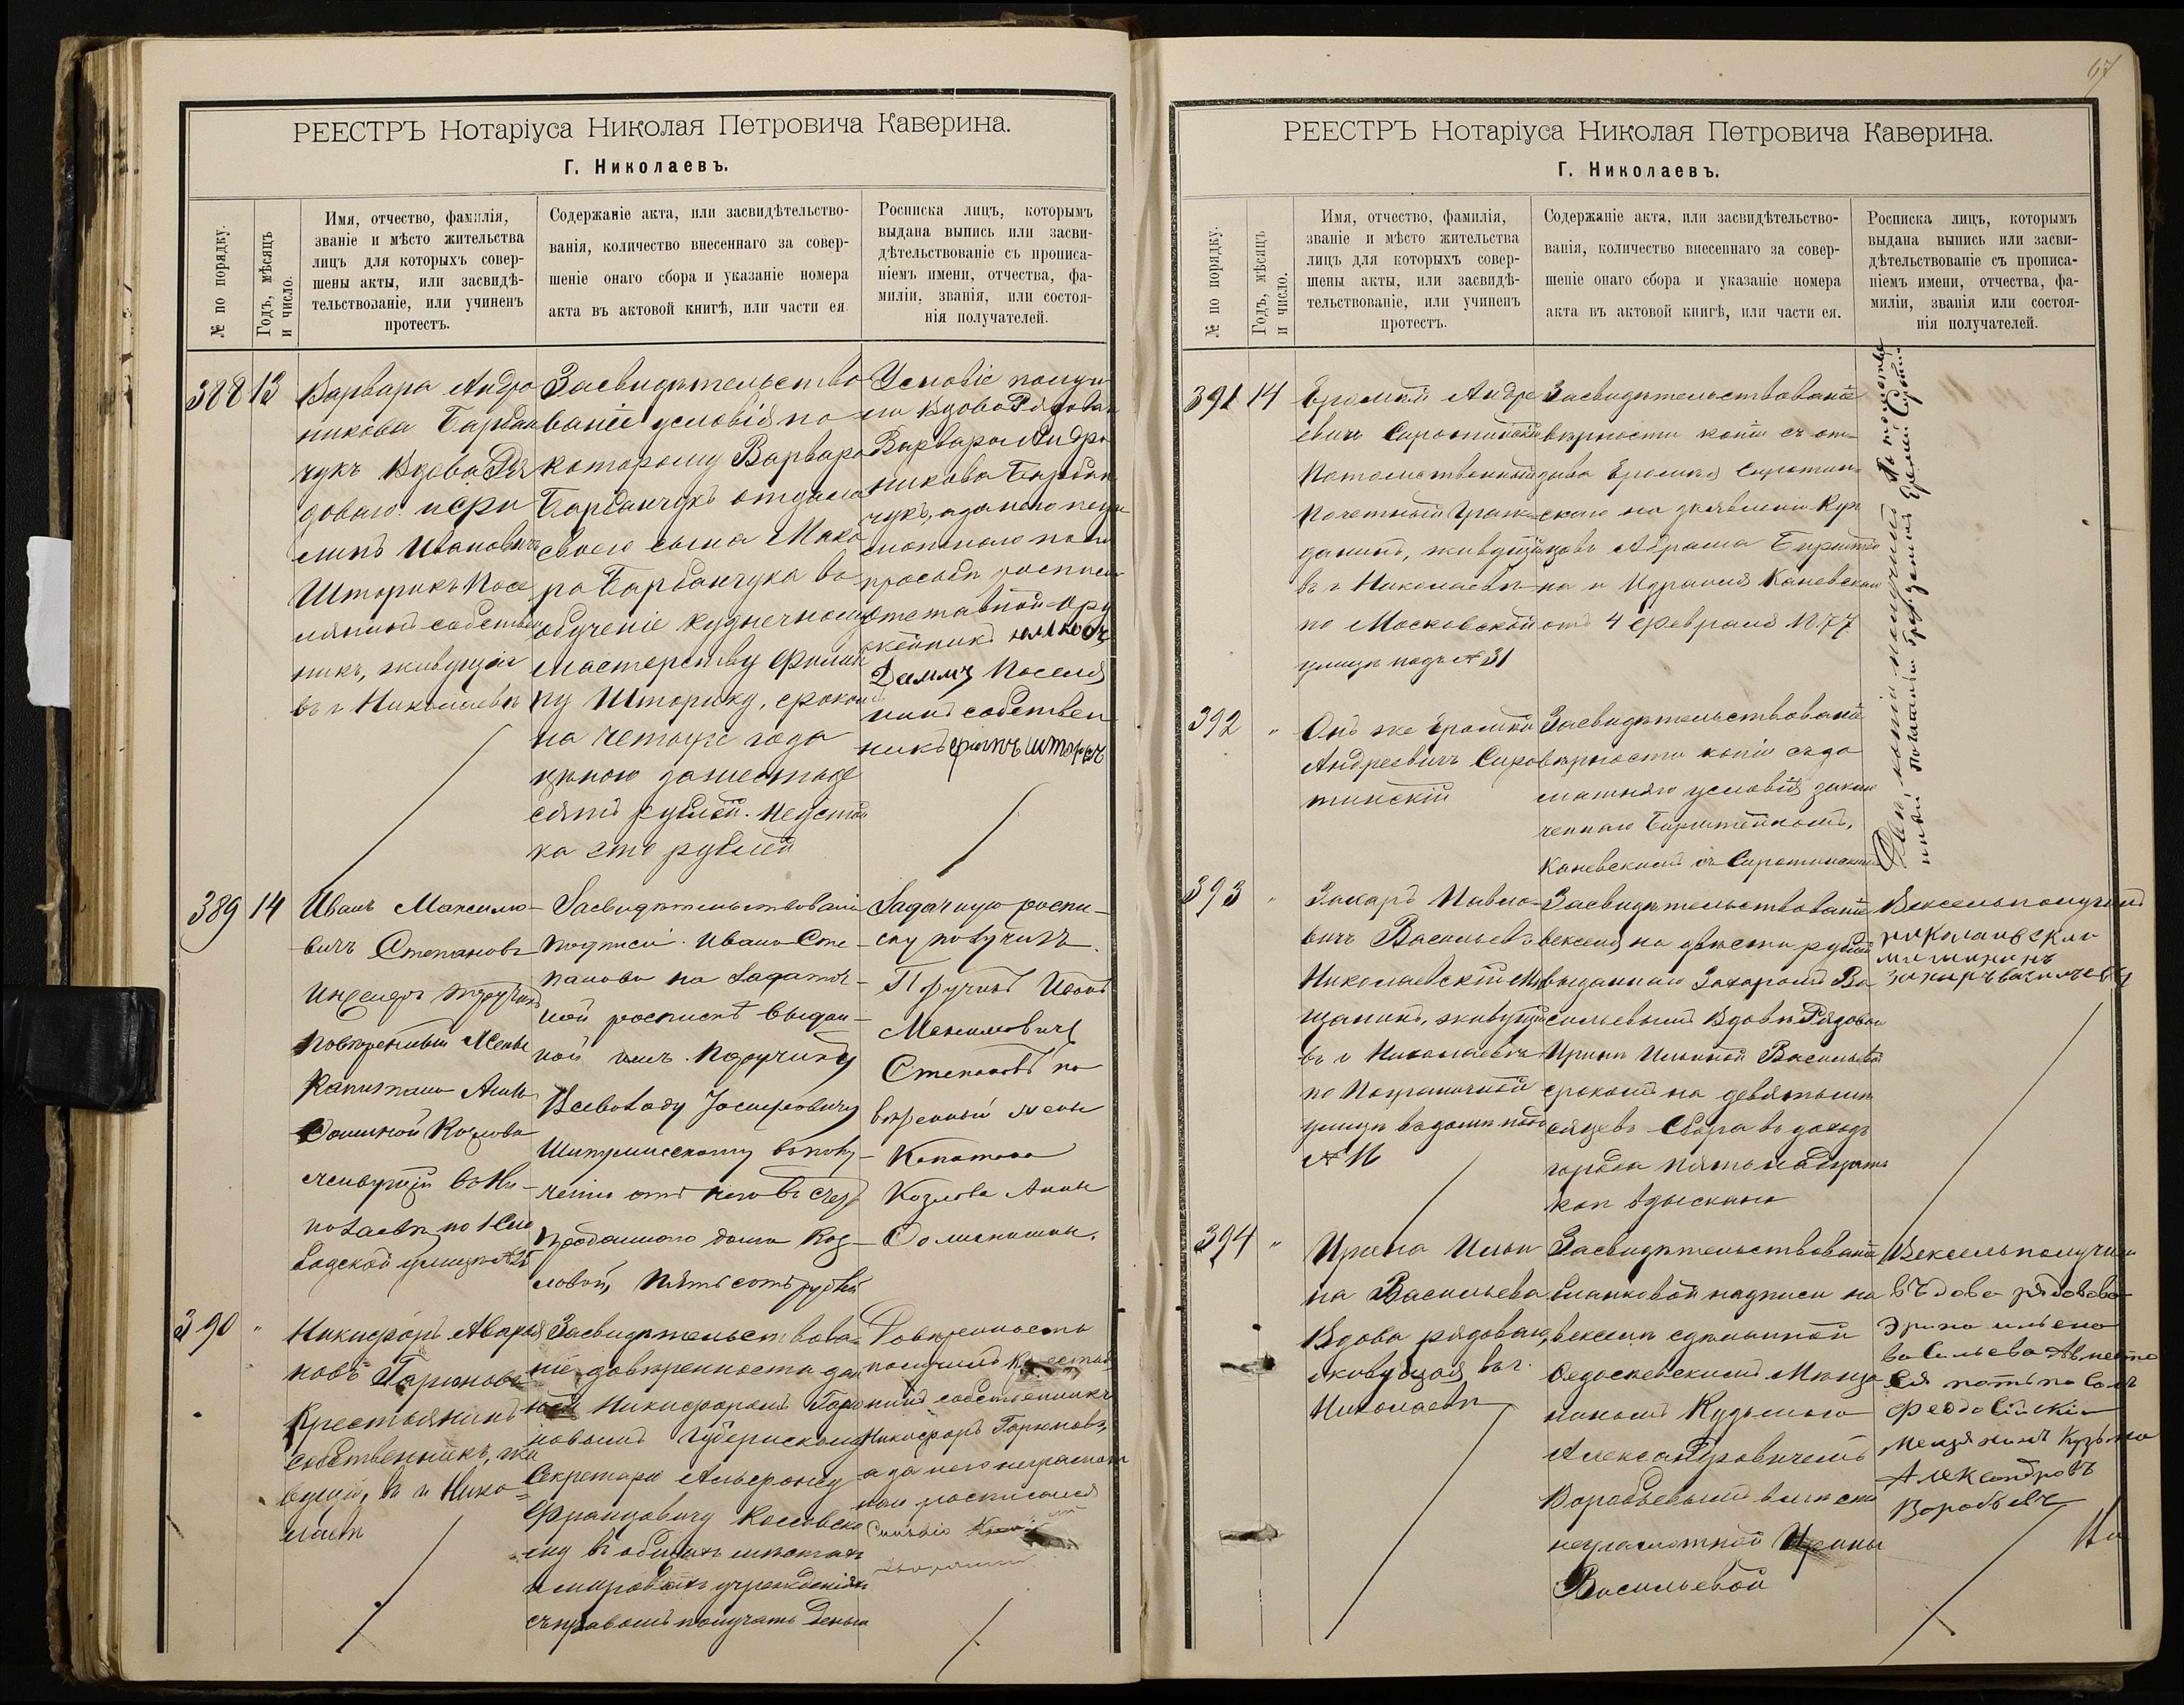 РЕЕСТРЪ Нотаріуса Николая Петровича Каверина.
Г. Николаевъ.
№ по порядку.
Годъ, мѣсяцъ
и число.
Имя, отчество, фамилія,
званіе и мѣсто жительства
лицъ для которыхъ совер-
шены акты, или засвидѣ-
тельствованіе, или учиненъ
протестъ.
Содержаніе акта, или засвидѣтельство-
ванія, количество внесеннаго за совер-
шеніе онаго сбора и указаніе номера
акта въ актовой книгѣ, или части ея.
Росписка лицъ, которымъ
выдана выпись или засви-
дѣтельствованіе съ прописа-
ніемъ имени, отчества, фа-
миліи, званія, или состоя-
нія получателей.
388 13
Варвара Андро
никова Барбан
чукъ Вдова Ря
доваго и Фри
липъ Ивановичъ
Шторикъ Посе
лянинъ собствен
никъ, живущіе
въ г Николаевѣ
Засвидѣтельство
ваніе условія по
которому Варвара
Барбанчукъ отдала
своего сына Мака
ра Барбанчука во
обученіе кузнечному
мастерству Филип
пу Шторику, срокомъ
на четыре года
цѣною за шестьде
сятъ рублей. Неустой
ка сто рублей
Условіе получи
ли Вдова Рядоваго
Варвара Андро
никова Барбан
чукъ, а за нею негра
мотною по ея
просьбѣ росписался
отставной
Поселя
нинъ собствен
никъ
389 14
Иванъ Максимо-
вичъ Степановъ
Инженеръ поручикъ
повѣренный Жены
Капитана Анны
Козловой
живущій въ Ни-
колаевѣ по
водской улицѣ № 25
Засвидѣтельствованіе
подписи Ивана Сте-
панова на задаточ-
ной роспискѣ выдан-
ной имъ Поручику
Всеволоду Іосифовичу
въ полу-
ченіи отъ него въ счетъ
проданнаго дома Коз-
ловой, пятьсотъ рублей
Задаточную роспи-
ску получилъ
Поручикъ Иванъ
Максимовичъ
Степановъ по
вѣренный жены
Капитана
Козлова Анны
390 "
Никифоръ Аверья
новъ Горюновъ
Крестьянинъ
собственникъ, жи
вущій въ г Нико-
лаевѣ
Засвидѣтельствова-
ніе довѣренности дан
ной Никифоромъ Горю
новымъ Губернскому
Секретарю Альфонсу
Францовичу Коссовско
му въ общихъ мѣстахъ
и мировыхъ учрежденіяхъ
съ правомъ получать деньги
Довѣренность
получилъ Крестья
нинъ собственникъ
Никифоръ Горюновъ,
а за него неграмот
наго росписался
РЕЕСТРЪ Нотаріуса Николая Петровича Каверина.
Г. Николаевъ.
67
№ по порядку.
Годъ, мѣсяцъ
и число.
Имя, отчество, фамилія,
званіе и мѣсто жительства
лицъ для которыхъ совер-
шены акты, или засвидѣ-
тельствованіе, или учиненъ
протестъ.
Содержаніе акта, или засвидѣтельство-
ванія, количество внесеннаго за совер-
шеніе онаго сбора и указаніе номера
акта въ актовой книгѣ, или части ея.
Росписка лицъ, которымъ
выдана выпись или засви-
дѣтельствованіе съ прописа-
ніемъ имени, отчества, фа-
миліи, званія или состоя-
нія получателей.
391 14
Еремѣй Андре
евичъ Сиротинскій
Потомственный
Почетный Граж
данинъ, живущій
въ г Николаевѣ
по Московской
улицѣ подъ № 31
Засвидѣтельствованіе
вѣрности копіи съ от-
зыва Еремѣя Сиротин-
скаго на заявленіе Куп
цовъ Абрама Бирштей
на и Израиля Каневскаго
отъ 4 Февраля 1877
392 "
Онъ же Еремѣй
Андреевичъ Сиро
тинскій
Засвидѣтельствованіе
вѣрности копіи съ до
машняго условія заклю
ченнаго Бирштейномъ,
Каневскимъ съ Сиротинскимъ
копіи получилъ Потомстве
нный Почетный Гражданинъ Еремѣй
393 "
Захаръ Павло-
вичъ Васильевъ
Николаевскій Мѣ
щанинъ, живущій
въ г Николаевѣ
по Пограничной
улицѣ въ домѣ подъ
№ 16
Засвидѣтельствованіе
векселя на двѣсти рублей
выданнаго Захаромъ Ва
сильевымъ Вдовѣ Рядоваго
Иринѣ Ильиной Васильевой
срокомъ на девять мѣ
сяцевъ Сбора въ доходъ
города пятьнадцать
коп взыскано
Вексель получилъ
николаевски
мещанинъ
захаръ васильевъ
394 "
Ирина Ильи
на Васильева
Вдова рядоваго,
живущая въ г.
Николаевѣ
Засвидѣтельствованіе
бланковой надписи на
векселѣ сдѣланной
Ѳедосіевскимъ Мѣща
ниномъ Кузьмою
Александровичемъ
Воробьевымъ вмѣсто
неграмотной Ирины
Васильевой
Вексель получила
въдова рядовова
Васильева
Феодосійскій
Мещанинъ Кузьма
Александровъ
Воробьевъ